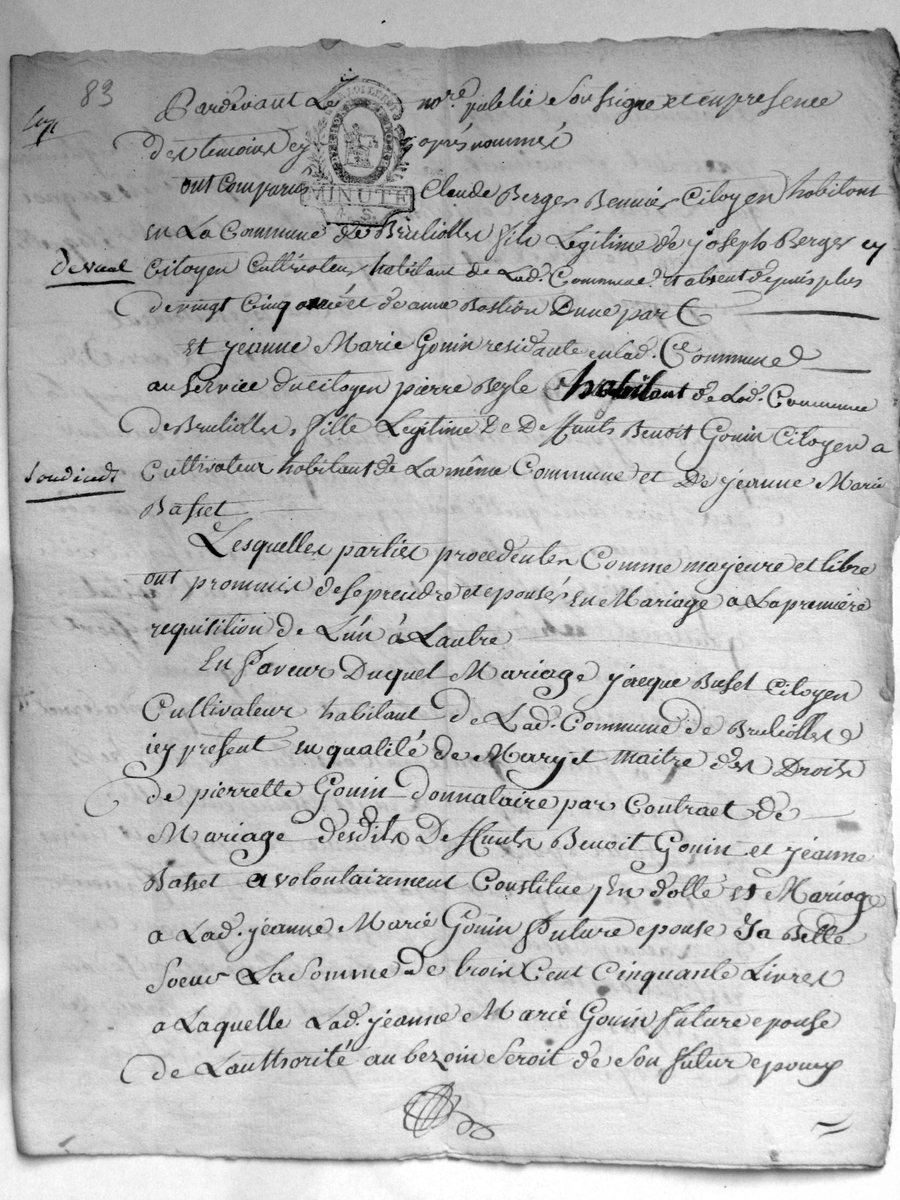 83
Pardevant Le nore. publié Soussigné et en presence
des temoins cy après nommés
MINUTE
ont Comparus Claude Berger Bennier Citoyen habitant
en La Commune de Brulliolles fils Legitime de joseph Berger cy
Citoyen Cultivateur habitant de Lad. Commune. et absent depuis plus
de vingt Cinq et de anne Bastion Dune part
Et jeanne Marie Gouin residante en lad. Commune
au Service du Citoyen pierre habitant de Lad. Commune
de Brulliolles, fille Legitime de Deffunts Benoit Gouin Citoyen a
Cultivateur habitant de La même Commune et De jeanne Marie
Basset
Lesquelles parties procedentes Comme majeure et libre
ont prommis de se prendre et epouser en Mariage a La première
requisition de L'un à Lautre
En faveur Duquel Mariage jacque Buset Citoyen
Cultivateur habitant de Lad. Commune de Brulliolles
icy present en qualité de Mary et maitre des Droits
de pierrette Gouin donnataire par Contract de
Mariage desdits Deffunts Benoit Gouin et jeanne
Basset a volontairement Constitué En dotte et Mariage
a Lad. jeanne Marie Gouin future epouse Sa Belle
Soeur La Somme de trois Cent Cinquante Livres
a Laquelle Lad. jeanne Marie Gouin future epouse
de Lauthorité au bezoin Seroit de Son futur epoux